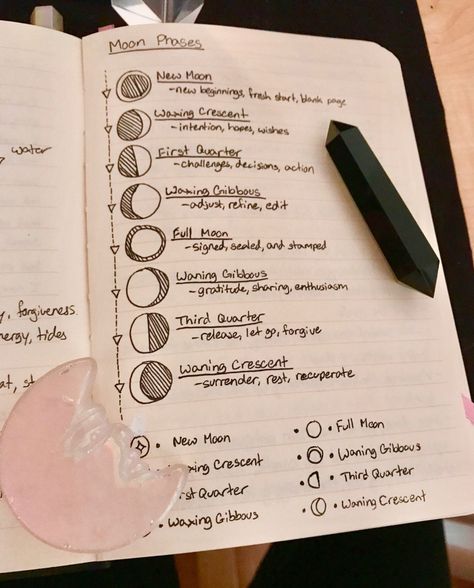 Moon Phases
New Moon
-new beginnings, fresh start, blank page
Waxing Crescent
-intention, hopes, wishes
First Quarter
-challenges, decisions, action
Waxing Gibbous
-adjust, refine, edit
Full Moon
-signed, sealed, and stamped
Waning Gibbous
-gratitude, sharing, enthusiasm
Third Quarter
-release, let go, forgive
Waning Crescent
-surrender, rest, recuperate
• New Moon
Crescent
Quarter
• Waxing Gibbous
• Full Moon
• Waning Gibbous
• Third Quarter
• Waning Crescent
water
forgiveness
tides